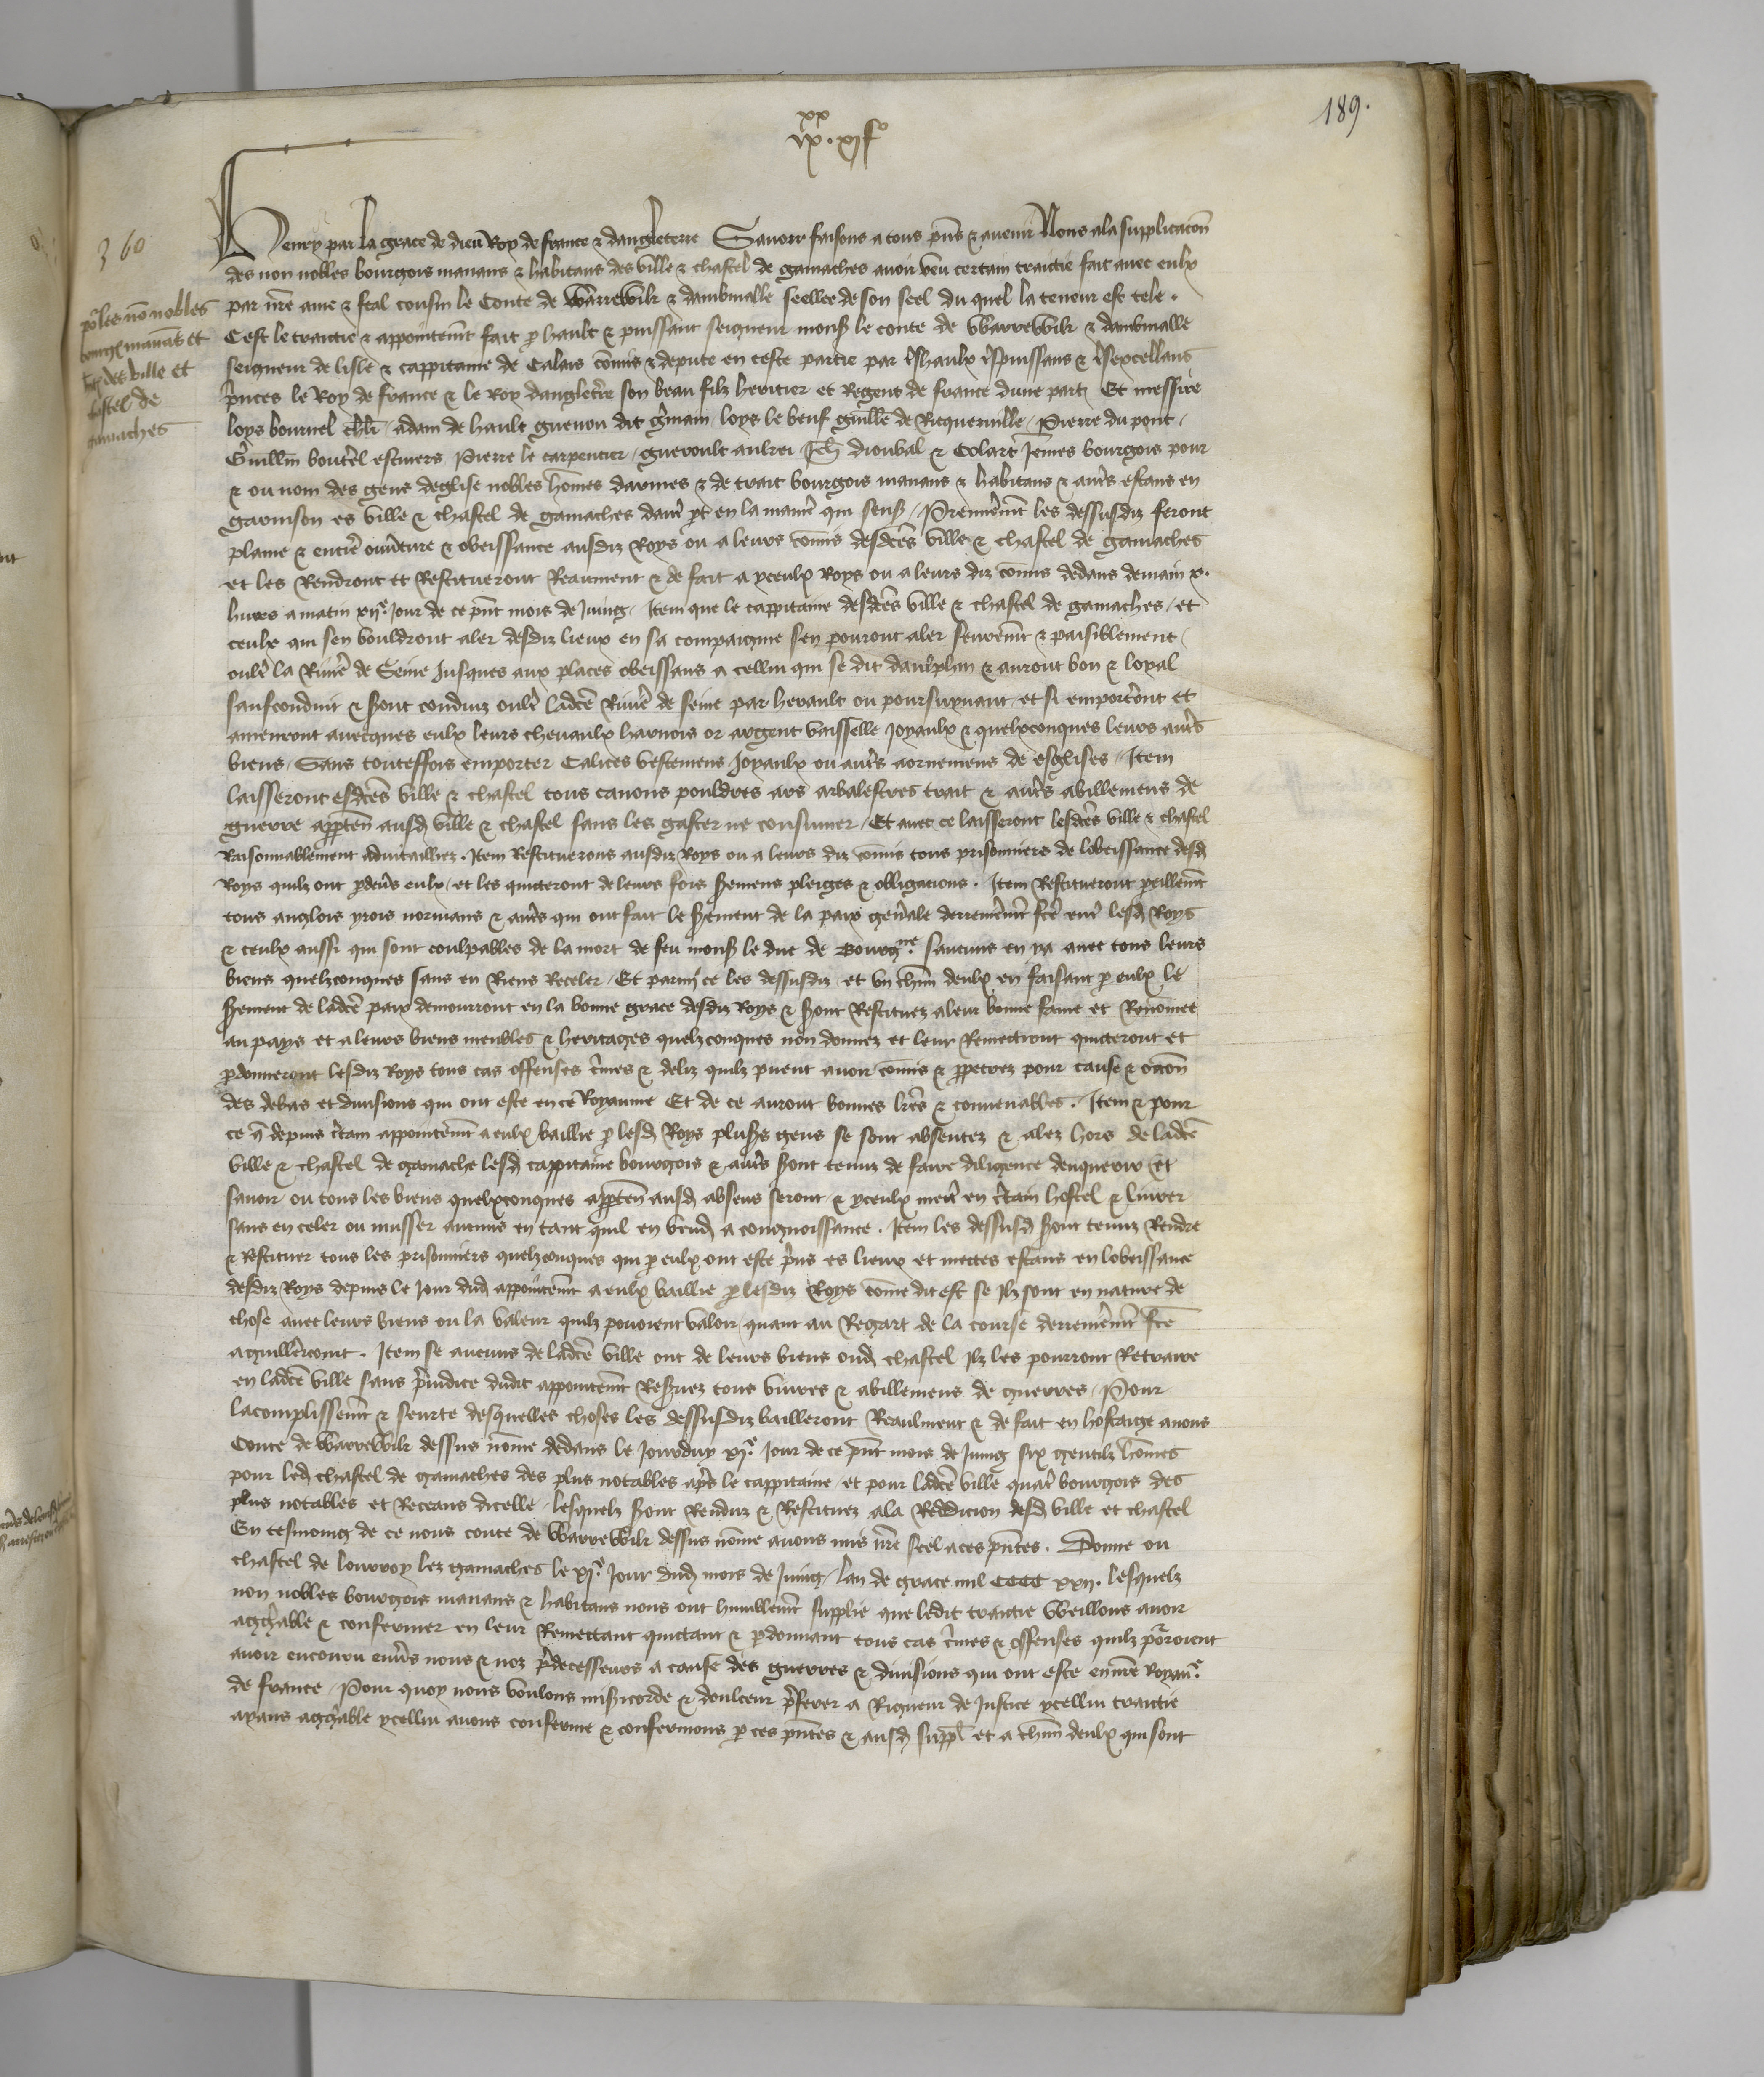 189.
xx
ix . xij fo
360
Henry par la grace de dieu Roy de france & dangleterre Sauoir faisons a tous pns & auenir Nous ala supplicacon
des non nobles bourgois manans & habitans des ville & chastel de gamaches auoir veu certain traictie fait auec eulx
par nre ame & feal cousin le Conte de Warrewik & daubmalle seellee de son seel du quel la teneur est tele .
po les no nobles
bourg manas et
des ville et
castel de
gamaches
Cest le traictie & appointemt fait p hault & puissant seigneur mons le conte de Warrewik & daubmalle
seigneur de lisle & cappitaine de Calais comis & depute en ceste partie par tshaulx tspuissans & tsexcellans
princes le Roy de france & le Roy dangletre son beau filz heritier et Regent de france dune part Et messire
loys bournel chlr / adam de hault guenou dit gmain / loys le beuf guille de Ricqueuille / Pierre du pont /
Guillm boutel escuiers Pierre le carpentier / gueroult aubrei Jeh diouval & Colart Jemes bourgois pour
& ou nom des gens deglise nobles homes darmes & de trait bourgois manans & habitans & autrs estans en
garnison es ville & chastel de gamaches dautr pt en la manie qui sens / Premieremt les dessusdiz feront
plaine & entiere ouuture & obeissance ausdiz Roys ou a leurs comis desdces ville & chastel de gamaches
et les Rendront et Restitueront Reaument & de fait a yceulx Roys ou a leurs diz comis dedans demain x .
hures a matin xije Jour de ce pnt mois de Juing / Item que le cappitaine desdces ville & chastel de gamaches / et
ceulx qui sen vouldront aler desdiz lieux en sa compaignie sen pouront aler seurement & paisiblement /
oultre la Riuie de Seine Jusques aux places obeissans a cellui qui se dit daulphin & auront bon & loyal
saufconduit & sront conduiz oultre ladce Riuie de seine par herault ou poursuyuant et si emportront et
amenront auecques eulx leurs cheuaulx harnois or argent vaisselle Joyaulx & quelxconques leurs autrs
biens / Sans touteffois emporter Calices vestemens Joyaulx ou autrs aornemens de esglises / Item
laisseront esdces ville & chastel tous canons pouldres ars arbalestres trait & autrs abillemens de
guerre apptens ausd ville & chastel sans les gaster ne consumer / Et auec ce laisseront lesdces ville & chastel
Raisonnablement aduitailliez . Item Restitueront ausdiz Roys ou a leurs diz comis tous prisonniers de lobeissance desd
Roys quilz ont pdeus eulx / et les quitteront de leurs fois sremens pleiges & obligations . Item Restitueront peillemt
tous anglois yrois normans & autrs qui ont fait le srement de la paix gen'ale derrenieremt fce entre lesd Roys
& ceulx aussi qui sont coulpables de la mort de feu mons le duc de Bourgne saucuns en ya auec tous leurs
biens quelzconques sans en Riens Receler / Et parmy ce les dessusdiz et vn chun deulx en faisant p eulx le
srement de ladce paix demourront en la bonne grace desdiz Roys & sront Restituez a leur bonne fame et Renomee
au pays et a leurs biens meubles & heritages quelzconques non donnez et leur Remettront quitteront et
pdonneront lesdiz Roys tous cas offenses crimes & deliz quilz puent auoir comis & ppetrez pour cause & occon
des debas et diuisions qui ont este en ce Royaume Et de ce auront bonnes lres & conuenables . Item & pour
ce q depuis ctain appointemt a eulx baillie p lesd Roys plusrs gens se sont absentez & alez hors de ladce
ville & chastel de gamache lesd cappitaine bourgois & autrs sront tenuz de faire diligence denquerir et
sauoir ou tous les biens quelxconques apptens ausd absens seront & yceulx mettre en ctain hostel & liurer
sans en celer ou musser aucuns en tant quil en vendra a congnoissance . Item les dessusd sront tenuz Rendre
& Restituer tous les prisonniers quelzconques qui p eulx ont este prins es lieux et mettes estans en lobeissance
desdiz Roys depuis le Jour dud appointemt a eulx baillie p lesdiz Roys come dit est se Ilz sont en nature de
chose auec leurs biens ou la valeur quilz pouoient valoir / quant au Regart de la course derrenieremt fce
aguillercourt . Item se aucuns de ladce ville ont de leurs biens oud chastel Ilz les pourront Retraire
en ladce ville sans preiudice dudit appointemt Resruez tous viures & abillemens de guerres / Pour
lacomplissemt & seurte desquelles choses les dessusdiz bailleront Reaulment & de fait en hostaige a nous
Conte de Warrewik dessus nome dedans le Jourduy xje Jour de ce pnt mois de Juing six gentilz homes
pour led chastel de gamaches des plus notables apres le cappitaine et pour ladce ville quatre bourgois des
plus notables et Receans dicelle / lesquelz sront Renduz & Restituez ala Reddicion desd ville et chastel
En tesmoing de ce nous conte de Warrewik dessus nome auons mis nre seel a ces pntes . Donne ou
chastel de louvroy lez gamaches le xje Jour dud mois de Juing / lan de grace mil CCCC xxij . lesquelz
non nobles bourgois manans & habitans nous ont humblemt supplie que ledit traictie Weillons auoir
aggreable & confermer en leur Remettant quittant & pdonnant tous cas crimes & offenses quilz porroient
auoir encouru enurs nous & noz predecesseurs a cause des guerres & diuisions qui ont este en nre Royaue
de france / Pour quoy nous voulans misricorde & doulceur preferer a Rigueur de Justice ycellui traictie
ayans aggreable ycellui auons conferme & confermons p ces pntes & ausd suppl et a chun deulx qui sont